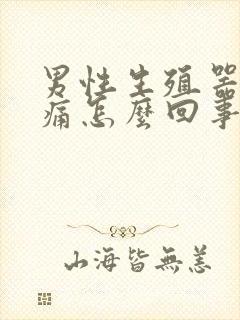 男性生殖器
痛怎麼回事
山海皆無恙